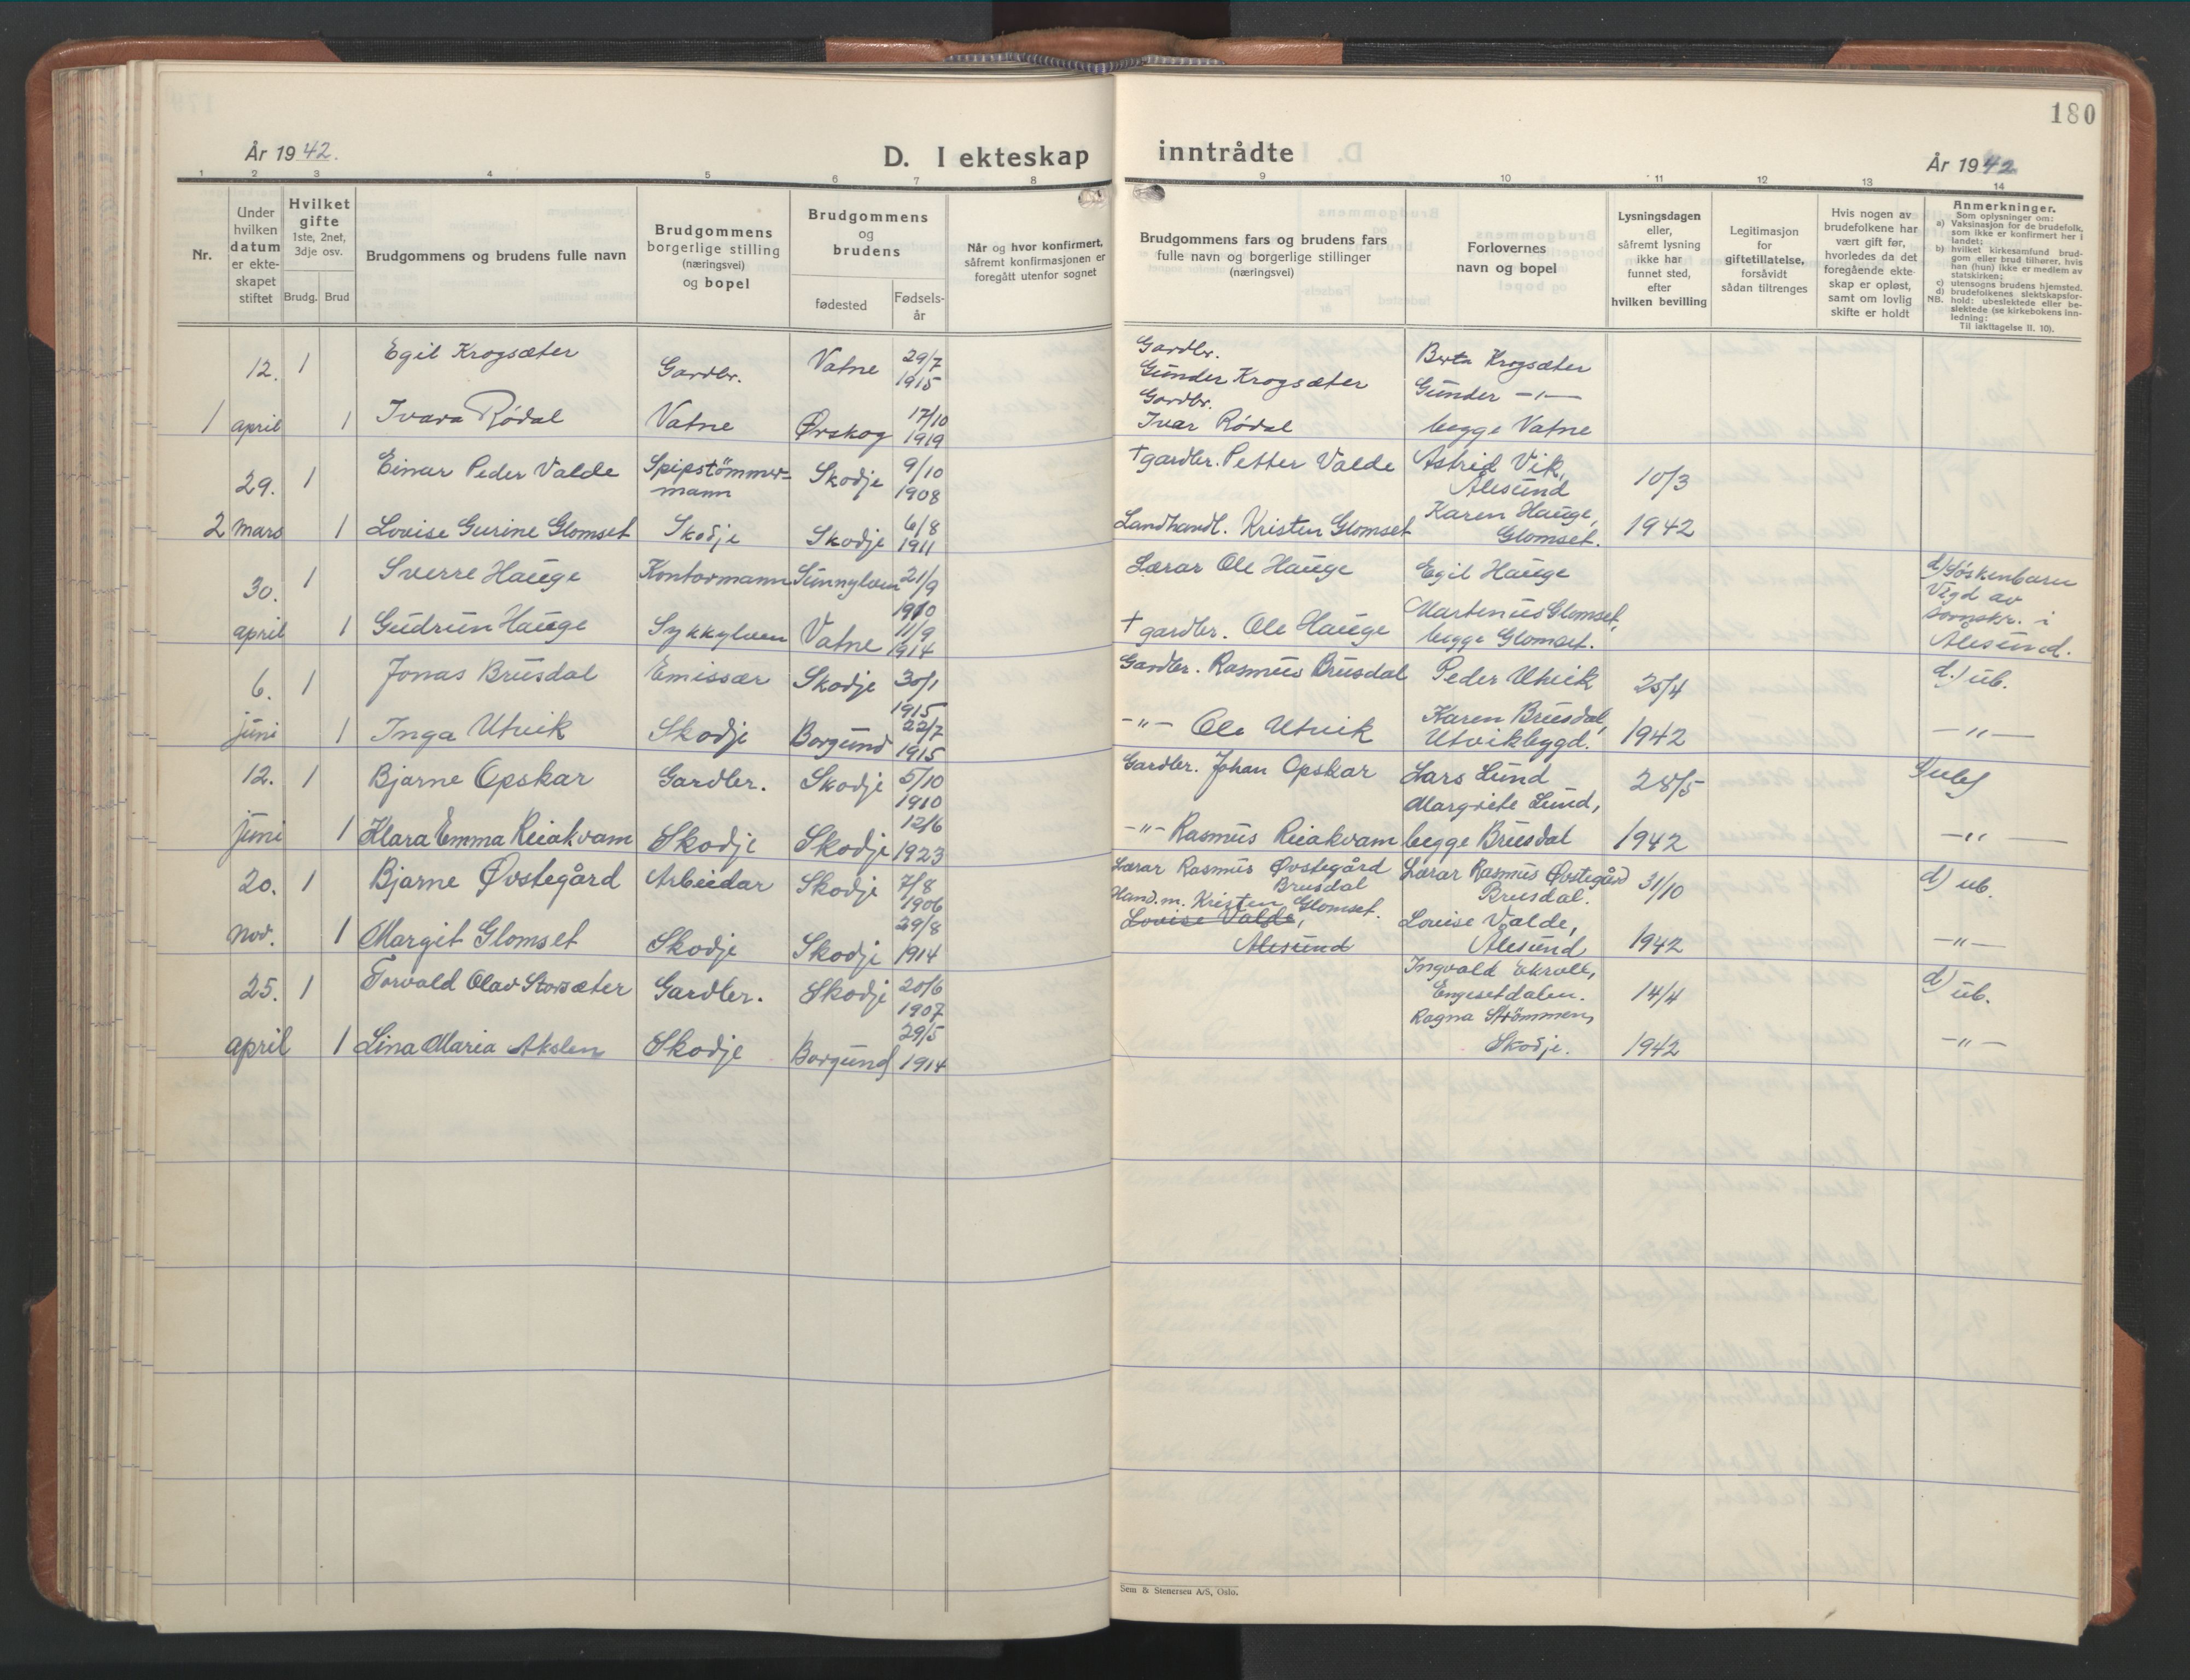 180
År 1942.
D. I ekteskap inntrådte
År 1942
1 2 3 4 5 6 7 8 9 10 11 12 13 14
Nr.
Under hvilken datum er ekteskapet stiftet
Hvilket gifte
1ste, 2net, 3dje osv.
Brudg. Brud
Brudgommens og brudens fulle navn
Brudgommens borgerlige stilling (næringsvei) og bopel
Brudgommens og brudens
fødested
Fødsels-år
Når og hvor konfirmert, såfremt konfirmasjonen er foregått utenfor sognet
Brudgommens fars og brudens fars fulle navn og borgerlige stillinger (næringsvei)
Forlovernes navn og bopel
Lysningsdagen eller, såfremt lysning ikke har funnet sted, efter hvilken bevilling
Legitimasjon for giftetillatelse, forsåvidt sådan tiltrenges
Hvis nogen av brudefolkene har vært gift før, hvorledes da det foregående ekteskap er opløst, samt om lovlig skifte er holdt
Anmerkninger.
Som oplysninger om:
a) Vaksinasjon for de brudefolk, som ikke er konfirmert her i landet;
b) hvilket kirkesamfund brudgom eller brud tilhører, hvis han (hun) ikke er medlem av statskirken;
c) utensogns brudens hjemsted.
d) brudefolkenes slektskapsforhold: ubeslektede eller beslektede (se kirkebokens innledning:
NB. Til iakttagelse II. 10).
12. 1 Egil Krogsæter Gardbr. Vatne 29/7 1915 Gardbr. Gunder Krogsæter Berta Krogsæter
Gunder -"-
1 april 1 Ivara Rødal Vatne Ørskog 17/10 1919 Gardbr. Ivar Rødal begge Vatne
29. 1 Einar Peder Valde Spipstömmermann Skodje 9/10 1908 †gardbr. Petter Valde Astrid Vik, Ålesund 10/3
2 mars 1 Lovise Gurine Glomset Skodje Skodje 6/8 1911 Landhandl. Kristen Glomset Karen Hauge, Glomset. 1942
30. 1 Sverre Hauge Kontormann Sunnylven 21/9 1910 Lærar Ole Hauge Egil Hauge d) Søskenbarn
Vigd av sorenskr. i Ålesund.
april 1 Gudrun Hauge Sykkylven Vatne 11/9 1914 † gardbr. Ole Hauge Martenius Glomset, begge Glomset.
6. 1 Jonas Brusdal Emissær Skodje 30/1 1915 Gardbr. Rasmus Brusdal Peder Utvik 25/4 d.) ub.
juni 1 Inga Utvik Skodje Borgund 22/7 1915 -"- Ole Utvik Karen Brusdal, Utvikbygd. 1942 -"-
12. 1 Bjarne Opskar Gardbr. Skodje 5/10 1910 Gardbr. Johan Opskar Lars Lund 28/5
juni 1 Klara Emma Reiakvam Skodje Skodje 12/6 1923 -"- Rasmus Reiakvam Margrete Lund, begge Brusdal 1942 -"-
20. 1 Bjarne Øvstegård Arbeidar Skodje 7/8 1906 Lærar Rasmus Øvstegård Brusdal Lærar Rasmus Øvstegård Brusdal. 31/10 d) ub.
nov. 1 Margit Glomset Skodje Skodje 29/8 1914 Hand.m. Kristen Glomset. Lovise Valde, Ålesund Lovise Valde, Ålesund 1942 -"-
25. 1 Torvald Olav Storsæter Gardbr. Skodje 20/6 1907 Ingvald Ekroll, Engesetdalen. 14/4 d) ub.
april 1 Lina Maria Akslen Skodje Borgund 29/5 1914 Ragna Strömmen, Skodje. 1942 -"-
Sem & Stenersen A/S, Oslo.